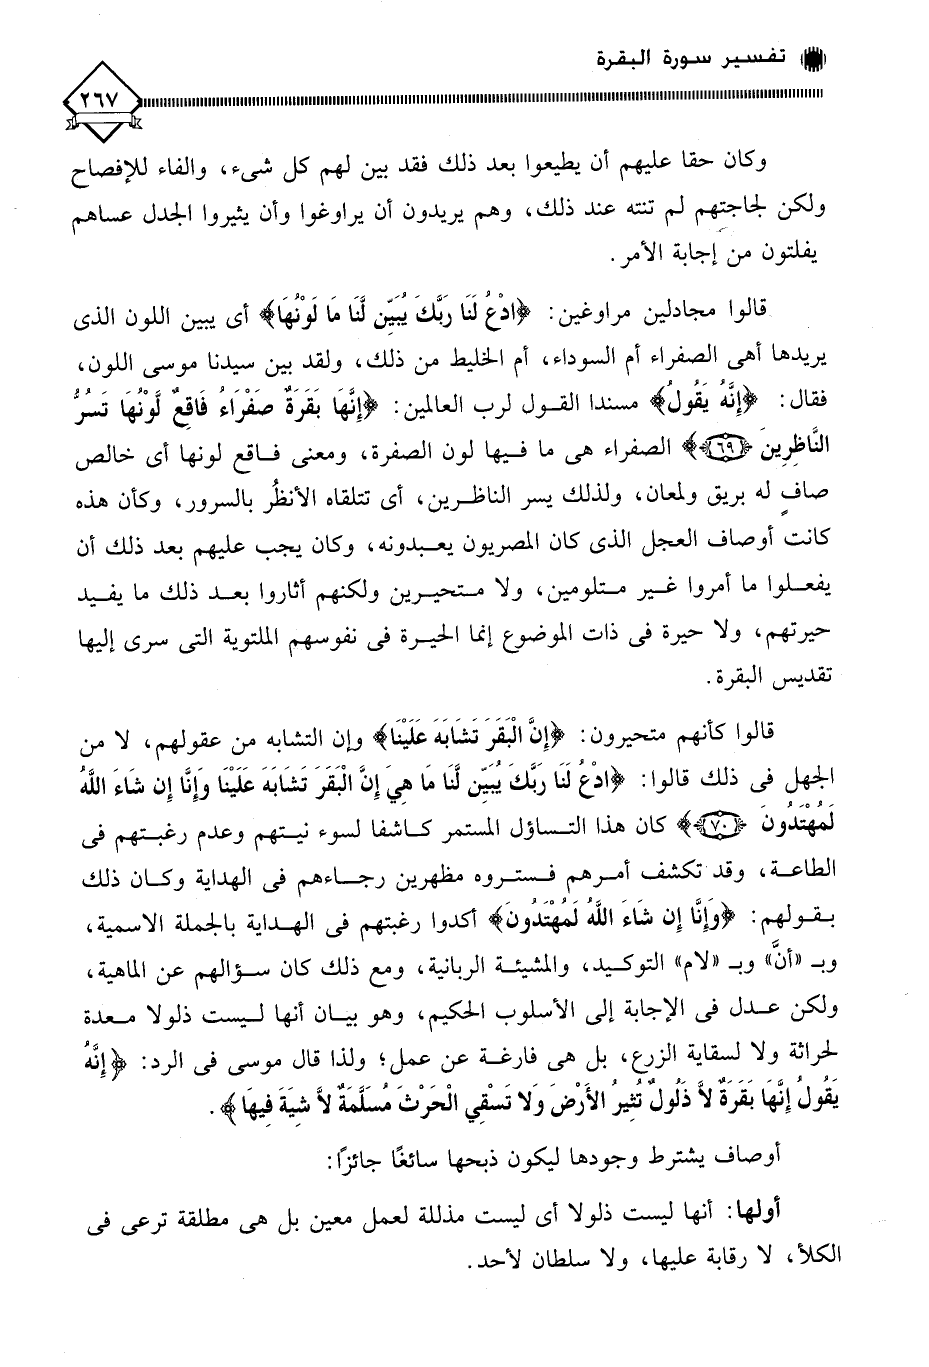 تفسير سورة البقرة
٢٦٧
وكان حقا عليهم أن يطيعوا بعد ذلك فقد بين لهم كل شىء، والفاء للإفصاح
ولكن لجاجتهم لم تنته عند ذلك، وهم يريدون أن يراوغوا وأن يثيروا الجدل عساهم
يفلتون من إجابة الأمر.
قالوا مجادلين مراوغين: ﴿ادْعُ لَنَا رَبَّكَ يُبَيِّن لَّنَا مَا لَوْنُهَا﴾ أى يبين اللون الذى
يريدها أهى الصفراء أم السوداء، أم الخليط من ذلك، ولقد بين سيدنا موسى اللون،
فقال: ﴿إِنَّهُ يَقُولُ﴾ مسندا القول لرب العالمين: ﴿إِنَّهَا بَقَرَةٌ صَفْرَاءُ فَاقِعٌ لَّوْنُهَا تَسُرُّ
النَّاظِرِينَ ﴿٦٩﴾﴾ الصفراء هى ما فيها لون الصفرة، ومعنى فاقع لونها أى خالص
صافٍ له بريق ولمعان، ولذلك يسر الناظرين، أى تتلقاه الأنظُر بالسرور، وكأن هذه
كانت أوصاف العجل الذى كان المصريون يعبدونه، وكان يجب عليهم بعد ذلك أن
يفعلوا ما أمروا غير متلومين، ولا متحيرين ولكنهم أثاروا بعد ذلك ما يفيد
حيرتهم، ولا حيرة فى ذات الموضوع إنما الحيرة فى نفوسهم الملتوية التى سرى إليها
تقديس البقرة.
قالوا كأنهم متحيرون: ﴿إِنَّ الْبَقَرَ تَشَابَهَ عَلَيْنَا﴾ وإن التشابه من عقولهم، لا من
الجهل فى ذلك قالوا: ﴿ادْعُ لَنَا رَبَّكَ يُبَيِّن لَّنَا مَا هِيَ إِنَّ الْبَقَرَ تَشَابَهَ عَلَيْنَا وَإِنَّا إِن شَاءَ اللَّهُ
لَمُهْتَدُونَ ﴿٧٠﴾﴾ كان هذا التساؤل المستمر كاشفا لسوء نيتهم وعدم رغبتهم فى
الطاعة، وقد تكشف أمرهم فستروه مظهرين رجاءهم فى الهداية وكان ذلك
بقولهم: ﴿وَإِنَّا إِن شَاءَ اللَّهُ لَمُهْتَدُونَ﴾ أكدوا رغبتهم فى الهداية بالجملة الاسمية،
وبـ «أنَّ» وبـ «لام» التوكيد، والمشيئة الربانية، ومع ذلك كان سؤالهم عن الماهية،
ولكن عدل فى الإجابة إلى الأسلوب الحكيم، وهو بيان أنها ليست ذلولا معدة
لحراثة ولا لسقاية الزرع، بل هى فارغة عن عمل؛ ولذا قال موسى فى الرد: ﴿إِنَّهُ
يَقُولُ إِنَّهَا بَقَرَةٌ لاَّ ذَلُولٌ تُثِيرُ الأَرْضَ وَلا تَسْقِي الْحَرْثَ مُسَلَّمَةٌ لاَّ شِيَةَ فِيهَا﴾.
أوصاف يشترط وجودها ليكون ذبحها سائغًا جائزًا:
أولها: أنها ليست ذلولا أى ليست مذللة لعمل معين بل هى مطلقة ترعى فى
الكلأ، لا رقابة عليها، ولا سلطان لأحد.